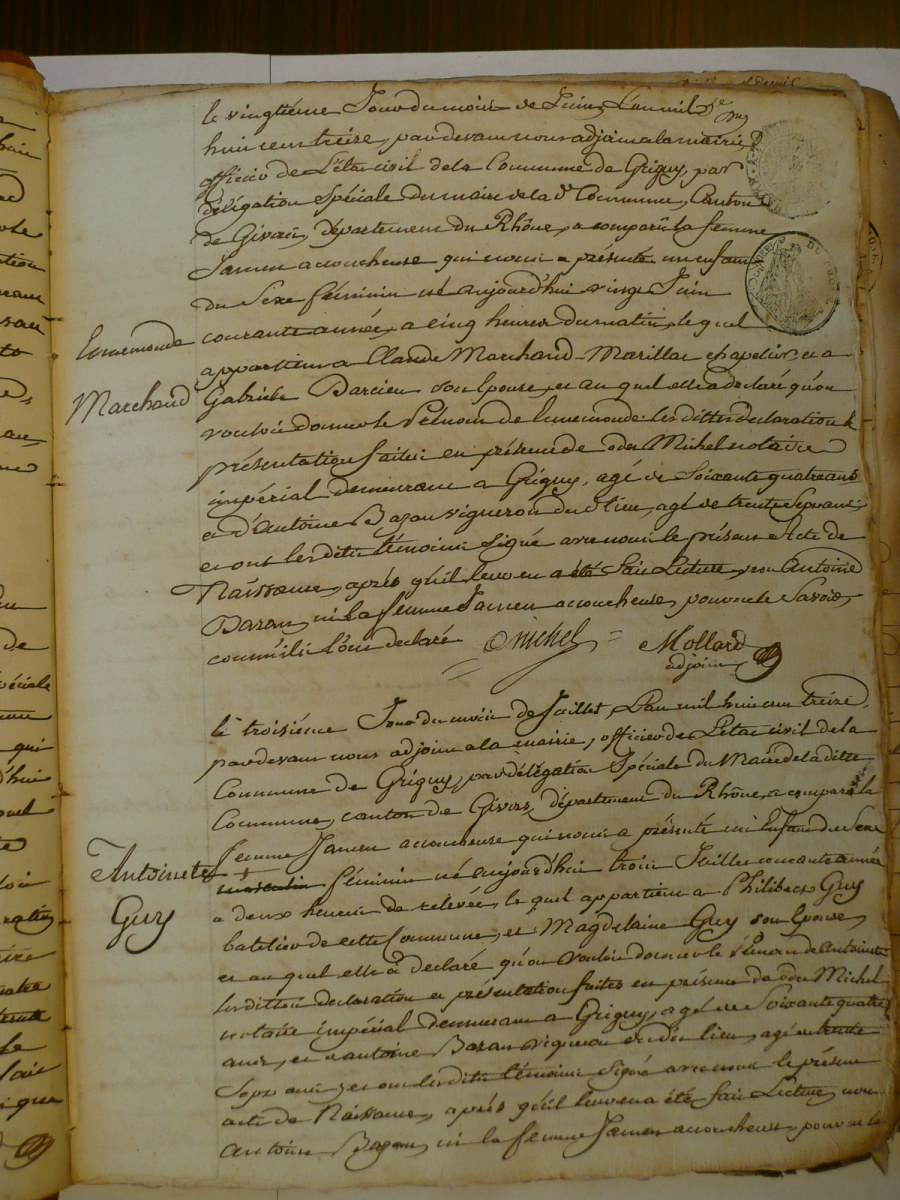 le vingtième Jour du mois de Juin, L'an mil
huit cent treize, pardevant nous adjoint a la mairie
officier de L'état civil de la Commune de Grigny, par
délégation Spéciale du maire de la de Commune, Canton
de Givors, département du Rhône, a comparu la femme
Jamen acoucheuse qui nous a présenté un enfant
du Sexe féminin né aujourd'hui vingt Juin
courante année, a cinq heures du matin, le quel
appartient a Claude Marchand Marillac chapelier, et a
Gabriele Darcieu son Epouse, et au quel elle a déclaré qu'on
vouloit donner le Prénom de Ennemonde les dittes declaration &
présentation faites en présence de Michel notaire
impérial demeurant a Grigny, agé de Soixante quatre ans
et d'Antoine Bazan vigneron du d lieu, agé de trente Sept ans,
et ont les dits témoins Signé avec nous le présent Acte de
Naissance, après qu'il leur en a été fait Lecture, non Antoine
Bazan, ni la femme Jamen acoucheuse, pour ne le Savoir,
comme ils l'ont declaré
Michel
Mollard
adjoint
Ennemonde
Marchand
le troisième Jour du mois de Juillet, L'an mil huit cent treize,
pardevant nous adjoint a la mairie, officier de L'état civil de la
Commune de Grigny, par délégation Spéciale du Maire de la ditte
Commune, canton de Givors, département du Rhône, a comparu la
femme Jamen acoucheuse qui nous a présenté un Enfant du Sexe
masculin féminin né aujourd'hui trois Juillet courante année
a deux heures de relevée, le quel appartient a Philibert Guy
batelier de cette Commune, et Magdelaine Guy son Epouse,
et au quel elle a declaré qu'on vouloit donner le Prenom de Antoinette
les dittes déclaration et présentation faites en présence de Michel
notaire impérial demeurant a Grigny, agé de Soixante quatre
ans, et d'antoine Bazan vigneron du dit lieu, agé de trente
Sept ans, et ont les dits témoins Signé avec nous le présent
acte de Naissance, après qu'il leur en a été fait Lecture, non
Antoine Bazan, ni la femme Jamen acoucheuse, pour ne le
Antoinete
Guy